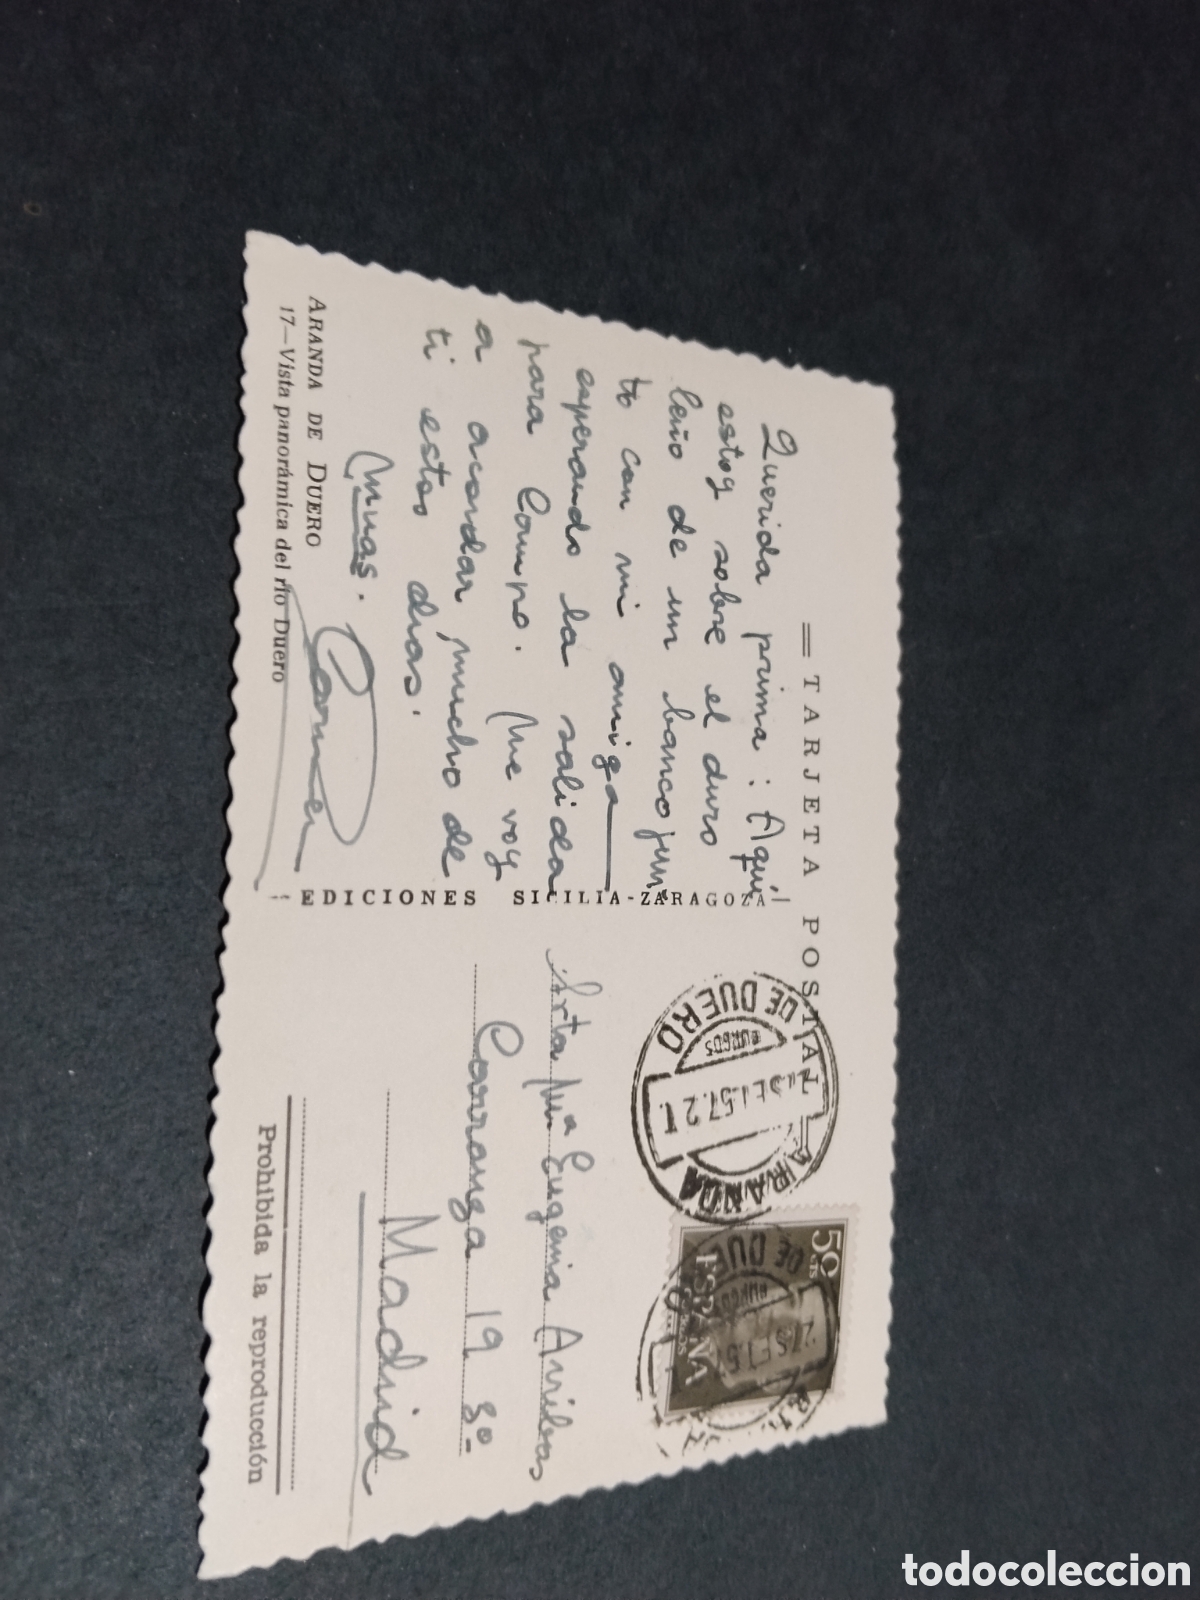 TARJETA POSTAL
Querida prima: Aquí
estoy sobre el duro
leño de un banco jun
to con mi amiga
esperando la salida
para Campo. Me voy
a acordar mucho de
ti estos dias.
Muas. Carmen
ARANDA DE DUERO
17—Vista panorámica del río Duero
EDICIONES SICILIA-ZARAGOZA
ARANDA DE DUERO
BURGOS
SET.57.21.
50 CTS
ESPAÑA
CORREOS
DE DUE
BURGOS
Srta Mª Eugenia
Carranza 19 3º
Madrid
Prohibida la reproducción
todocoleccion